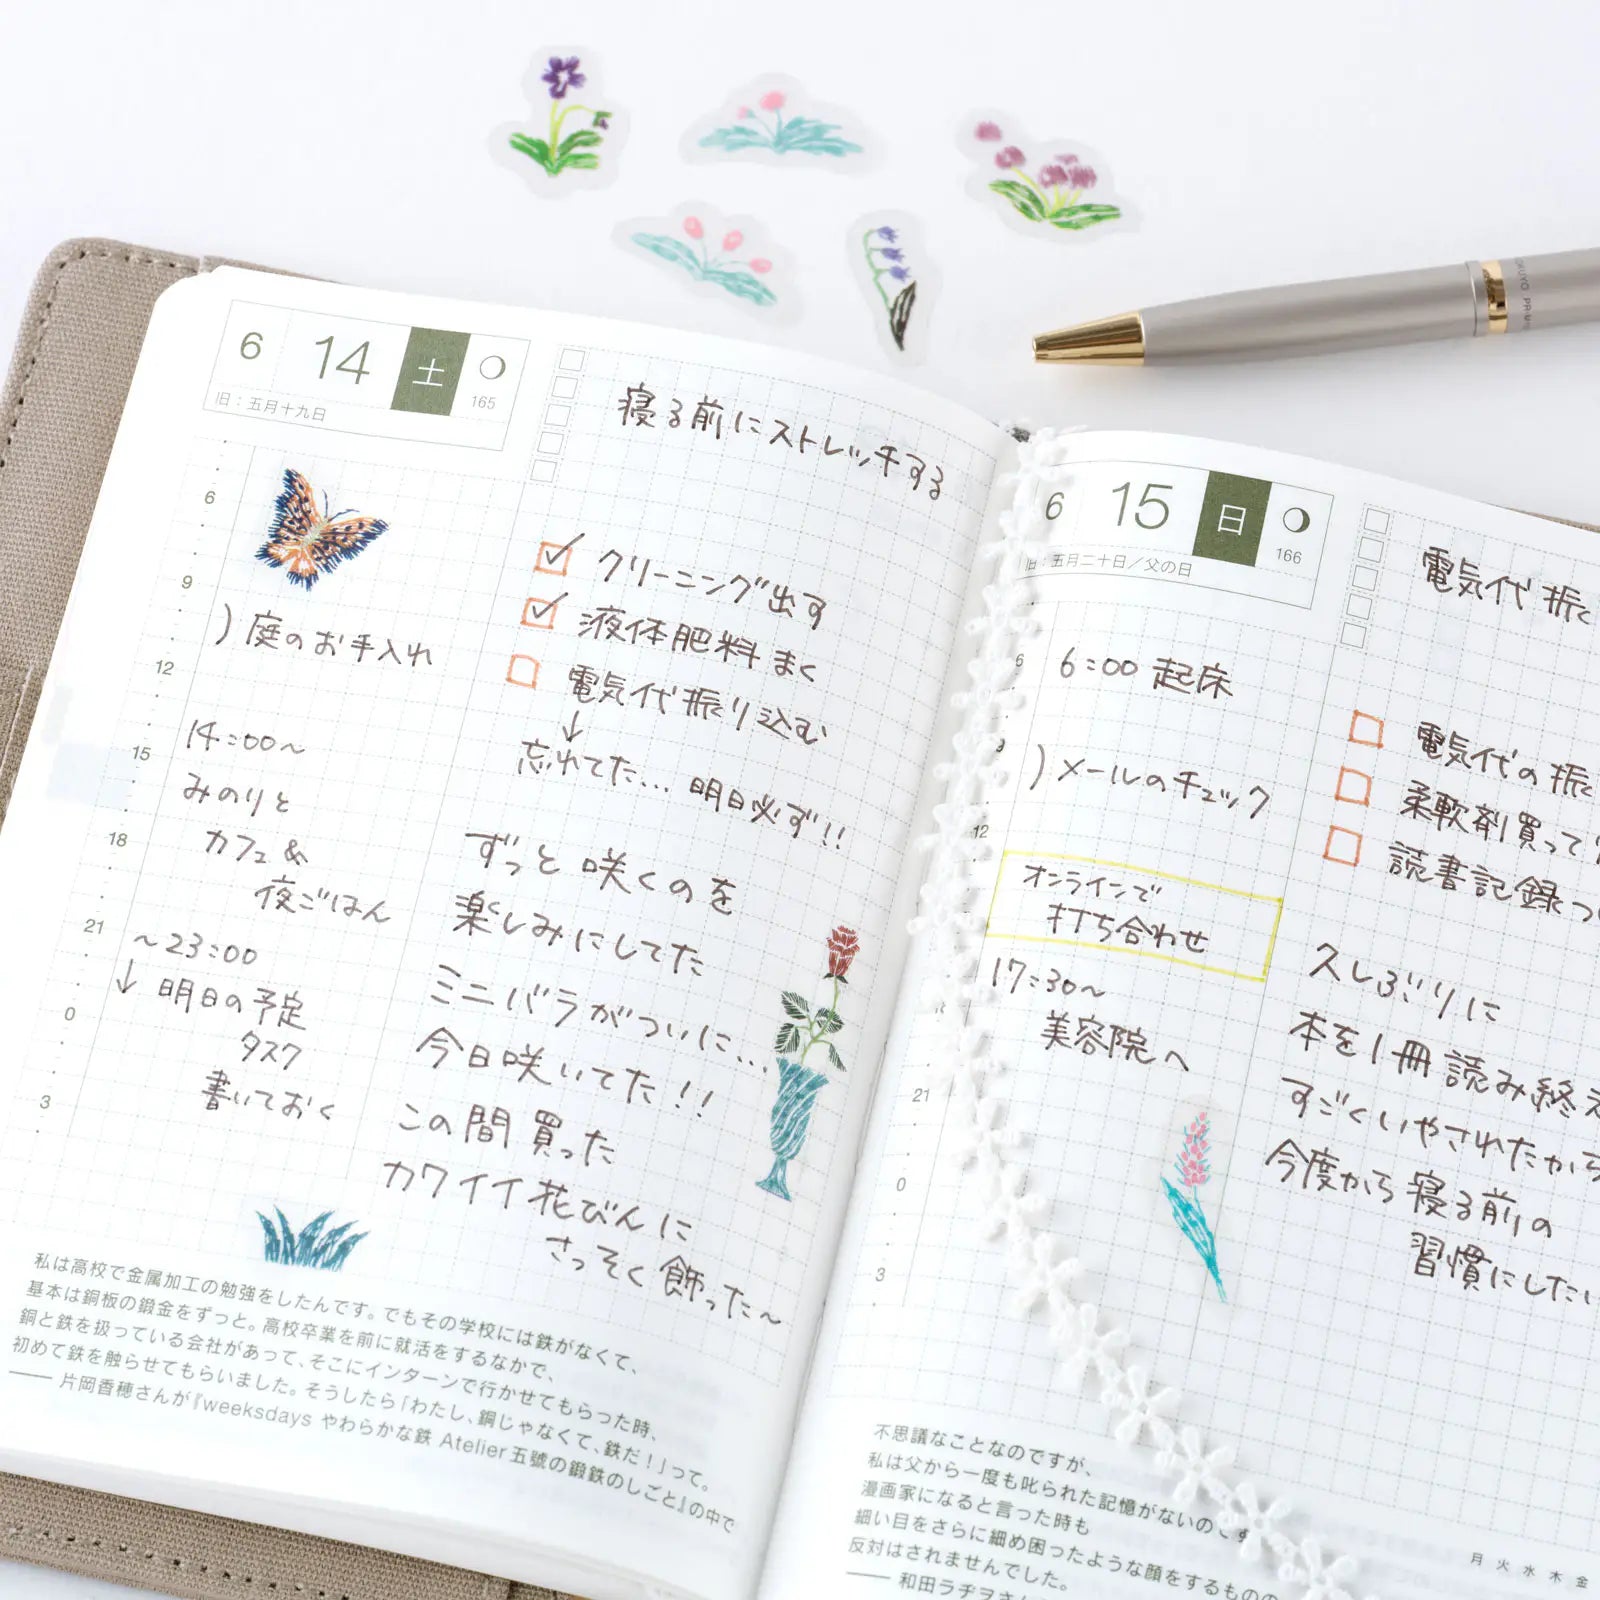 6 14 土
165
旧：五月十九日
寝る前にストレッチする
6
9
12
15
18
21
0
3
庭のお手入れ
14:00～
みのりと
カフェ&
夜ごはん
～23:00
↓ 明日の予定
タスク
書いておく
クリーニング出す
液体肥料まく
電気代振り込む
↓
忘れてた… 明日必ず!!
ずっと咲くのを
楽しみにしてた
ミニバラがついに…
今日咲いてた!!
この間買った
カワイイ花びんに
さっそく飾った～
私は高校で金属加工の勉強をしたんです。でもその学校には鉄がなくて、
基本は銅板の鍛金をずっと。高校卒業を前に就活をするなかで、
銅と鉄を扱っている会社があって、そこにインターンで行かせてもらった時、
初めて鉄を触らせてもらいました。そうしたら「わたし、銅じゃなくて、鉄だ！」って。
―― 片岡香穂さんが『weeksdays やわらかな鉄 Atelier五號の鍛鉄のしごと』の中で
6 15 日
166
旧：五月二十日／父の日
電気代 振
6
9
12
21
0
3
6:00 起床
メールのチェック
オンラインで
打ち合わせ
17:30～
美容院へ
電気代の振
柔軟剤買って
読書記録つ
久しぶりに
本を1冊読み終え
すごくいやされたから
今度から寝る前の
習慣にしたい
不思議なことなのですが、
私は父から一度も叱られた記憶がないのです
漫画家になると言った時も
細い目をさらに細め困ったような顔をするものの
反対はされませんでした。
―― 和田ラヂヲさん
月 火 水 木 金
KOKUYO